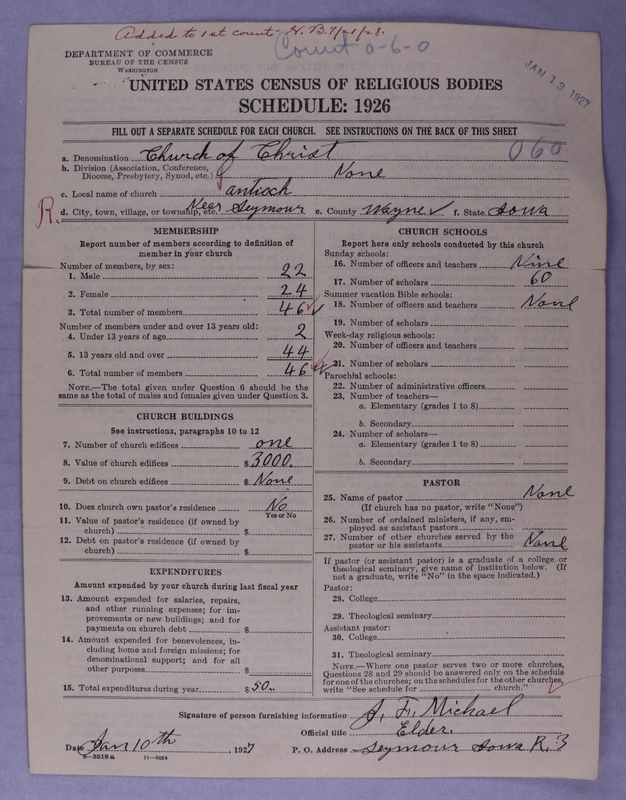 Added to 1st count - H.B. 7/21/28.
Count 0-6-0
DEPARTMENT OF COMMERCE
BUREAU OF THE CENSUS
WASHINGTON
JAN 13 1927
UNITED STATES CENSUS OF RELIGIOUS BODIES
SCHEDULE: 1926
FILL OUT A SEPARATE SCHEDULE FOR EACH CHURCH. SEE INSTRUCTIONS ON THE BACK OF THIS SHEET
a. Denomination Church of Christ 060
b. Division (Association, Conference, Diocese, Presbytery, Synod, etc.) None
c. Local name of church antioch
R. d. City, town, village, or township, etc. Near Seymour e. County Wayne ✓ f. State Iowa
MEMBERSHIP
Report number of members according to definition of
member in your church
Number of members, by sex:
1. Male 22
2. Female 24
3. Total number of members 46 ✓
Number of members under and over 13 years old:
4. Under 13 years of age 2
5. 13 years old and over 44
6. Total number of members 46 ✓
NOTE.—The total given under Question 6 should be the
same as the total of males and females given under Question 3.
CHURCH BUILDINGS
See instructions, paragraphs 10 to 12
7. Number of church edifices one
8. Value of church edifices $3000.
9. Debt on church edifices $ None
10. Does church own pastor's residence No
Yes or No
11. Value of pastor's residence (if owned by
church) $
12. Debt on pastor's residence (if owned by
church) $
EXPENDITURES
Amount expended by your church during last fiscal year
13. Amount expended for salaries, repairs,
and other running expenses; for im-
provements or new buildings; and for
payments on church debt $
14. Amount expended for benevolences, in-
cluding home and foreign missions; for
denominational support; and for all
other purposes $
15. Total expenditures during year $50..
CHURCH SCHOOLS
Report here only schools conducted by this church
Sunday schools:
16. Number of officers and teachers Nine
17. Number of scholars 60
Summer vacation Bible schools:
18. Number of officers and teachers None
19. Number of scholars
Week-day religious schools:
20. Number of officers and teachers
21. Number of scholars
Parochial schools:
22. Number of administrative officers
23. Number of teachers—
a. Elementary (grades 1 to 8)
b. Secondary
24. Number of scholars—
a. Elementary (grades 1 to 8)
b. Secondary
PASTOR
25. Name of pastor None
(If church has no pastor, write "None")
26. Number of ordained ministers, if any, em-
ployed as assistant pastors
27. Number of other churches served by the
pastor or his assistants None
If pastor (or assistant pastor) is a graduate of a college or
theological seminary, give name of institution below. (If
not a graduate, write "No" in the space indicated.)
Pastor:
28. College
29. Theological seminary
Assistant pastor:
30. College
31. Theological seminary
NOTE.—Where one pastor serves two or more churches,
Questions 28 and 29 should be answered only on the schedule
for one of the churches; on the schedules for the other churches,
write "See schedule for church." ✓
Signature of person furnishing information J. F. Michael
Official title Elder.
Date Jan 10th, 1927 P. O. Address Seymour Iowa R. 3
8—5518a 11—9564